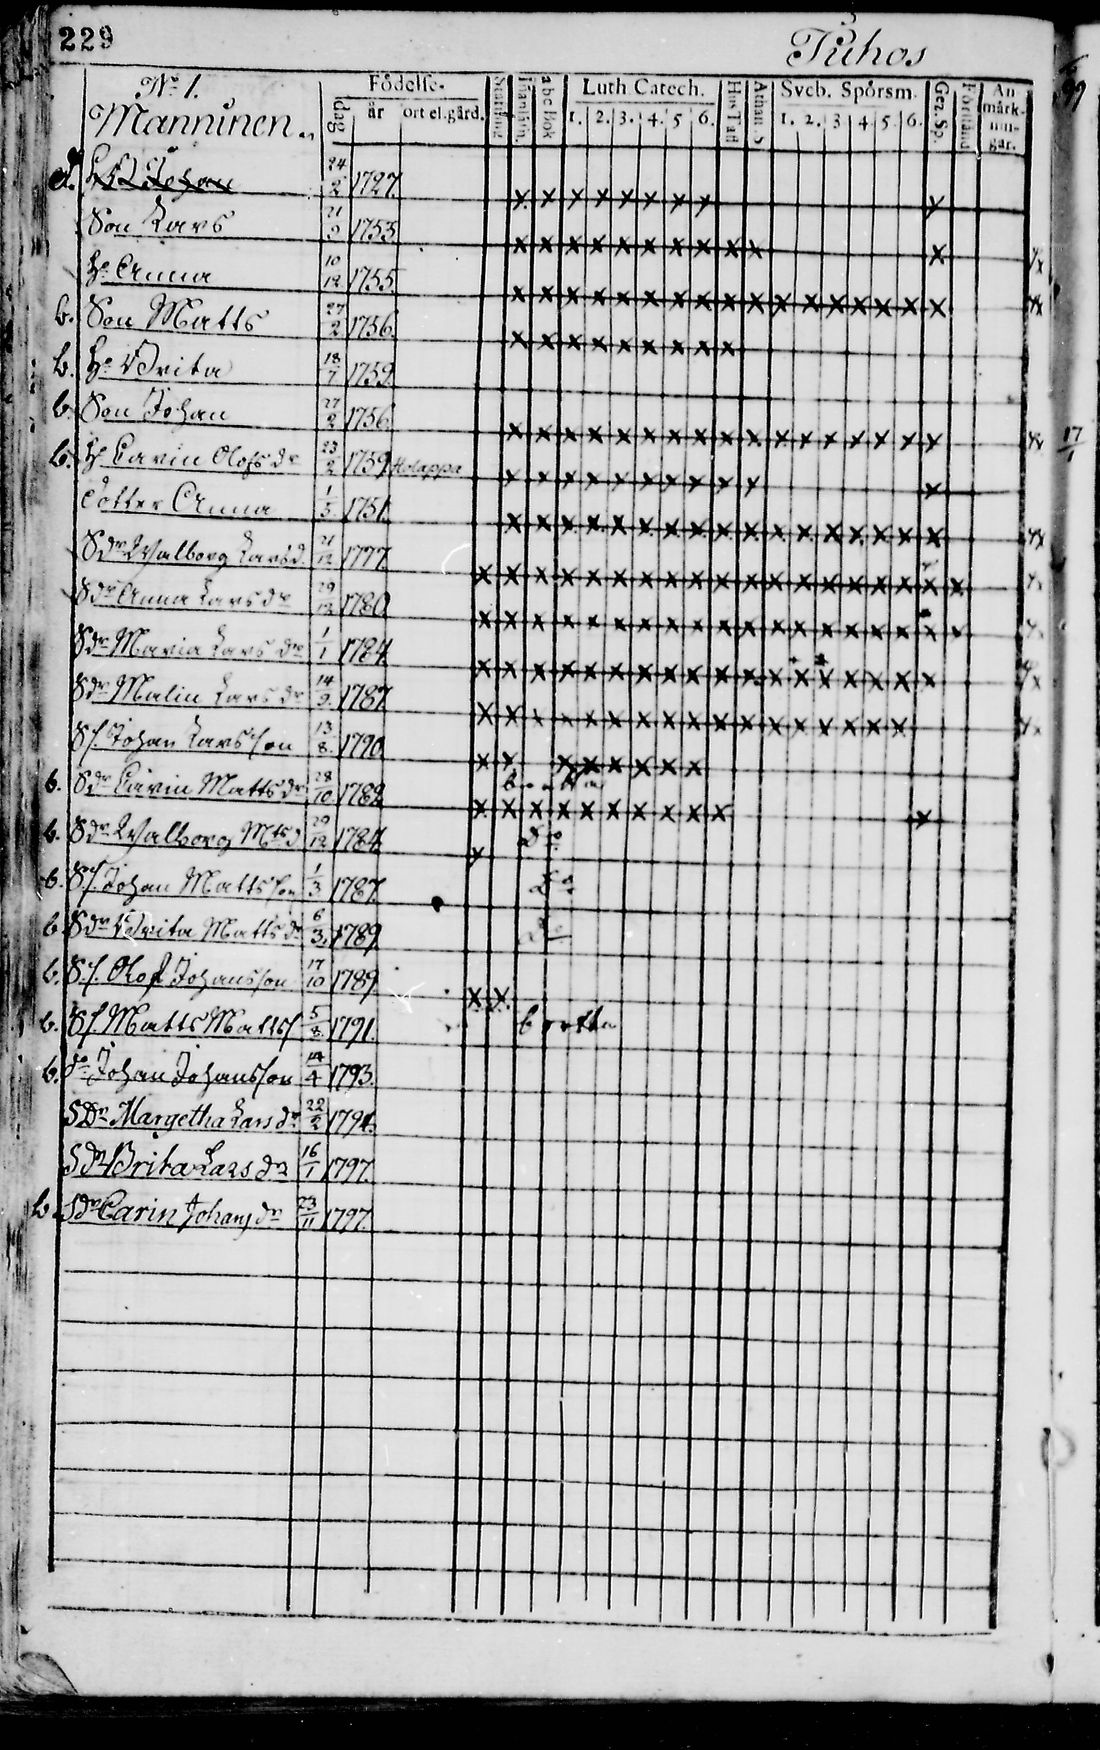 229
Tuhos
No 1.
Manninen.
Födelse-
dag
år
ort el. gård.
Innanläsn.
abc Bok
Luth Catech.
1. 2. 3. 4. 5 6.
Hus Tafl
Athan. S
Sveb. Spörsm.
1. 2. 3 4 5 6.
Gez. Sp.
Förstånd
An märk- nin- gar.
d. Johan 24/2 1727.
Son Lars 21/9 1753.
H. Anna 10/12 1755.
b. Son Matts 27/2 1756.
b. H. Brita 18/7 1759.
b. Son Johan 27/2 1756.
b. H. Carin Olofs dr 23/2 1759 Holappa
Dotter Anna 1/5 1751.
S dr Walborg Lars d. 21/12 1777.
S dr Anna Lars dr 29/12 1780.
S dr Maria Lars dr 1/1 1784.
S dr Malin Lars dr 14/9 1787.
S S. Johan Larsson 13/8. 1790.
b. S dr Carin Matts dr 28/10 1782. borta
b. S dr Walborg Mts d 29/12 1784. do
b. S S. Johan Mattsson 1/3 1787. do
b. S dr Brita Matts dr 6/3. 1789. do
b. S S. Olof Johansson 17/10 1789.
b. S S Matts Matts S 5/8 1791. borta
b. Johan Johansson 14/4 1793.
S Dr Margetha Lars dr 22/2 1794.
S dr Brita Lars dr 16/1 1797.
b. S dr Carin Johans dr 23/11 1797.
17/1